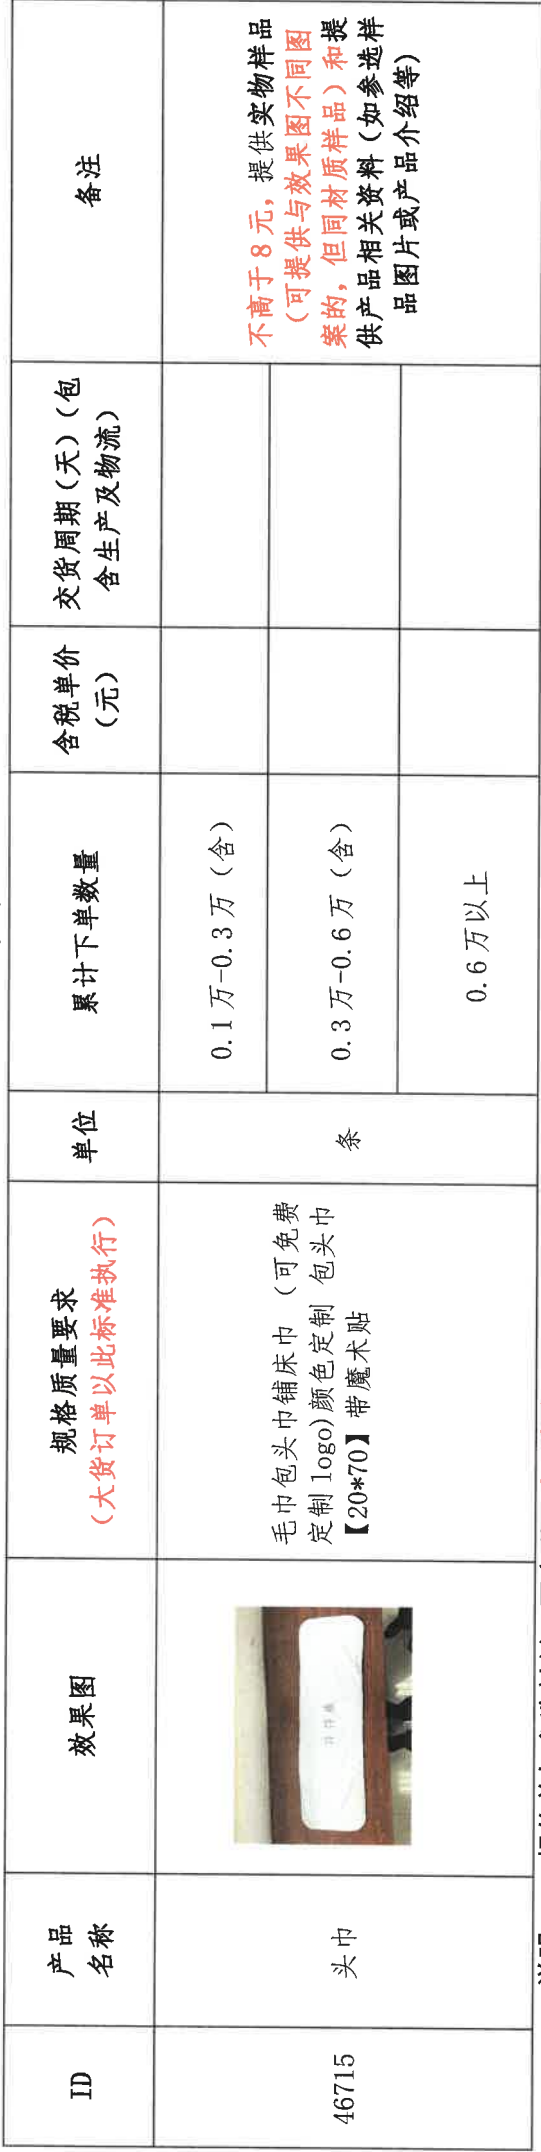 ID
产品
名称
效果图
规格质量要求
（大货订单以此标准执行）
单位
累计下单数量
含税单价
（元）
交货周期（天）（包
含生产及物流）
备注
46715
头巾
毛巾包头巾铺床巾（可免费
定制 logo)颜色定制 包头巾
【20*70】带魔术贴
条
0.1万-0.3万（含）
0.3万-0.6万（含）
0.6万以上
不高于8元，提供实物样品
（可提供与效果图不同图
案的，但同材质样品）和提
供产品相关资料（如参选样
品图片或产品介绍等）